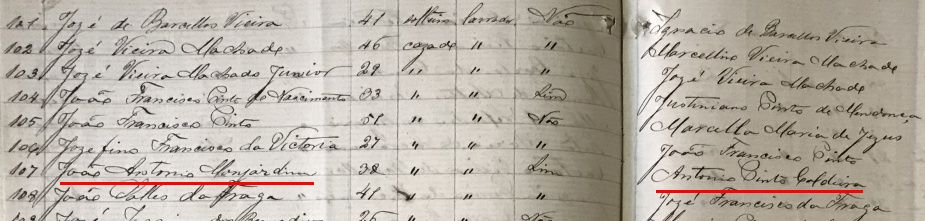 101 Jozé de Barcellos Vieira 41 solteiro lavrador Não Ignacio de Barcellos Vieira
102 Jozé Vieira Machado 46 cazado " " Marcellino Vieira Machado
103 Jozé Vieira Machado Junior 29 " " " Jozé Vieira Machado
104 João Francisco Pinto do Nascimento 33 " " Sim Justiniano Pinto de Mendonça
105 João Francisco Pinto 51 " " Não Marcella Maria de Jezus
106 Jozefino Francisco da Victoria 27 " " " João Francisco Pinto
107 João Antonio Monjardim 38 " " Sim Antonio Pinto Caldeira
108 João Salles da Fraga 41 " " " Jozé Francisco da Fraga